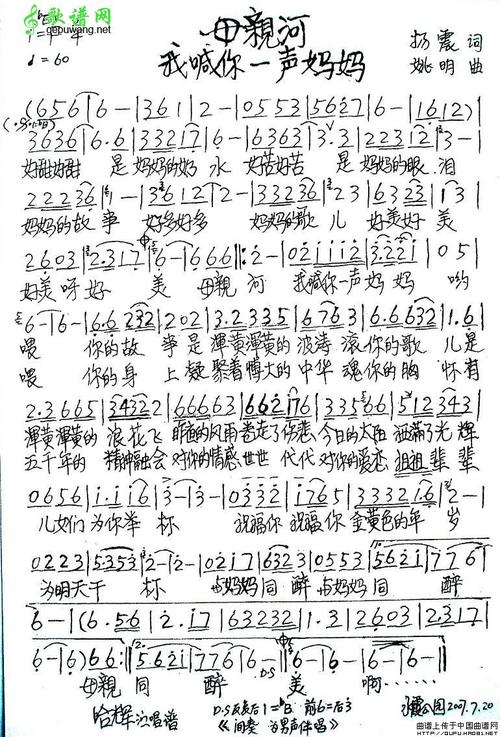 歌谱网
gepuwang.net
母親河
我喊你一声妈妈
杨震 词
姚明 曲
♩=60
(656|6-|361|2-|0553|5627|6-|1612)|
3636|6.6|33217|6-|6363|3.3|22312|3-|
好甜好甜 是妈妈的奶水 好苦好苦 是妈妈的眼泪
22236|1-|3612|2-|33236|23|6323|13|
妈妈的故事 好多好多 妈妈的歌儿 好美好美
2603|2317|6-|666:|2-|021112|3221|05|
好美呀好美 母親河 我喊你一声妈妈 哟
6-|6-|66232|202|32335|6763|66632|1.6|
喂 你的故事是渾黄渾黄的波涛滚你的歌儿是
喂 你的身上凝聚着博大的中华魂你的胸怀有
2.3665|3432|66663|662176|33566|512343|
渾黄渾黄的浪花飞 昨夜的风雨卷走了伤悲今日的太阳洒满了光辉
五千年的精神融会对你的情感世世代代对你的爱恋祖祖辈辈
0656|1.116|3-|3-|0332|1765|333216|2-|
儿女们为你举杯 祝福你祝福你金黄色的年岁
0223|5353|2-|2-|0217|6323|0553|5621|776|
为明天干杯 与妈妈同醉与妈妈同醉
6-|(6.56|2.17|63232|1.3|2603|2317|
6-|6-)66:|5621|776|6-|6-|6-|6-|
母親同醉 美啊……
D.S
哈辉演唱谱
D.S反复后1=B 前6=后3
《间奏 为男声伴唱》
2007.7.20
曲谱上传于中国曲谱网